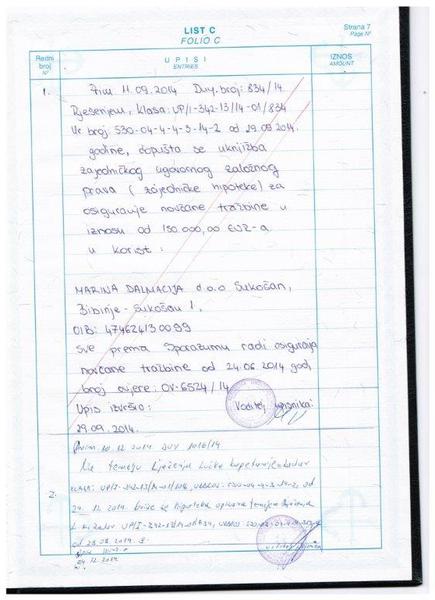 LIST C
FOLIO C
Strana 7
Page Nº
Redni
broj
Nº
UPISI
ENTRIES
IZNOS
AMOUNT
1. Prim. 11.09.2014 Duy. broj: 834/14
Rješenjem, klasa: UP/I-342-13/14-01/834
Ur. broj: 530-04-4-4-3-14-2 od 29.09.2014.
godine, dopušta se uknjižba
zajedničkog ugovornog založnog
prava ( zajedničke hipoteke) za
osiguranje novčane tražbine u
iznosu od 150 000,00 EUR-a
u korist :
MARINA DALMACIJA d.o.o Sukošan,
Bibinje-Sukošan 1,
OIB: 47462413 0099
sve prema Sporazumu radi osiguranja
novčane tražbine od 24.06 2014 god,
broj ovjere: OV-6524/14
Upis izvršio: Voditelj upisnika:
29.09.2014.
2. Prim 10.12.2014 DUY 1016/14
Na temelju Rješenja Lučke kapetanije Zadar
24.12.2014. briše se hipoteka upisana temeljem Rješenja
od 29.09.2014. g.